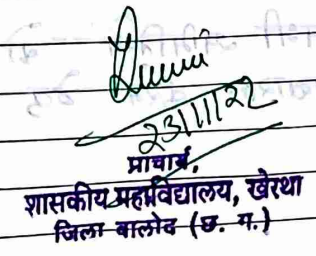 23/11/22
प्राचार्य,
शासकीय महाविद्यालय, खेरथा
जिला बालोद (छ. ग.)